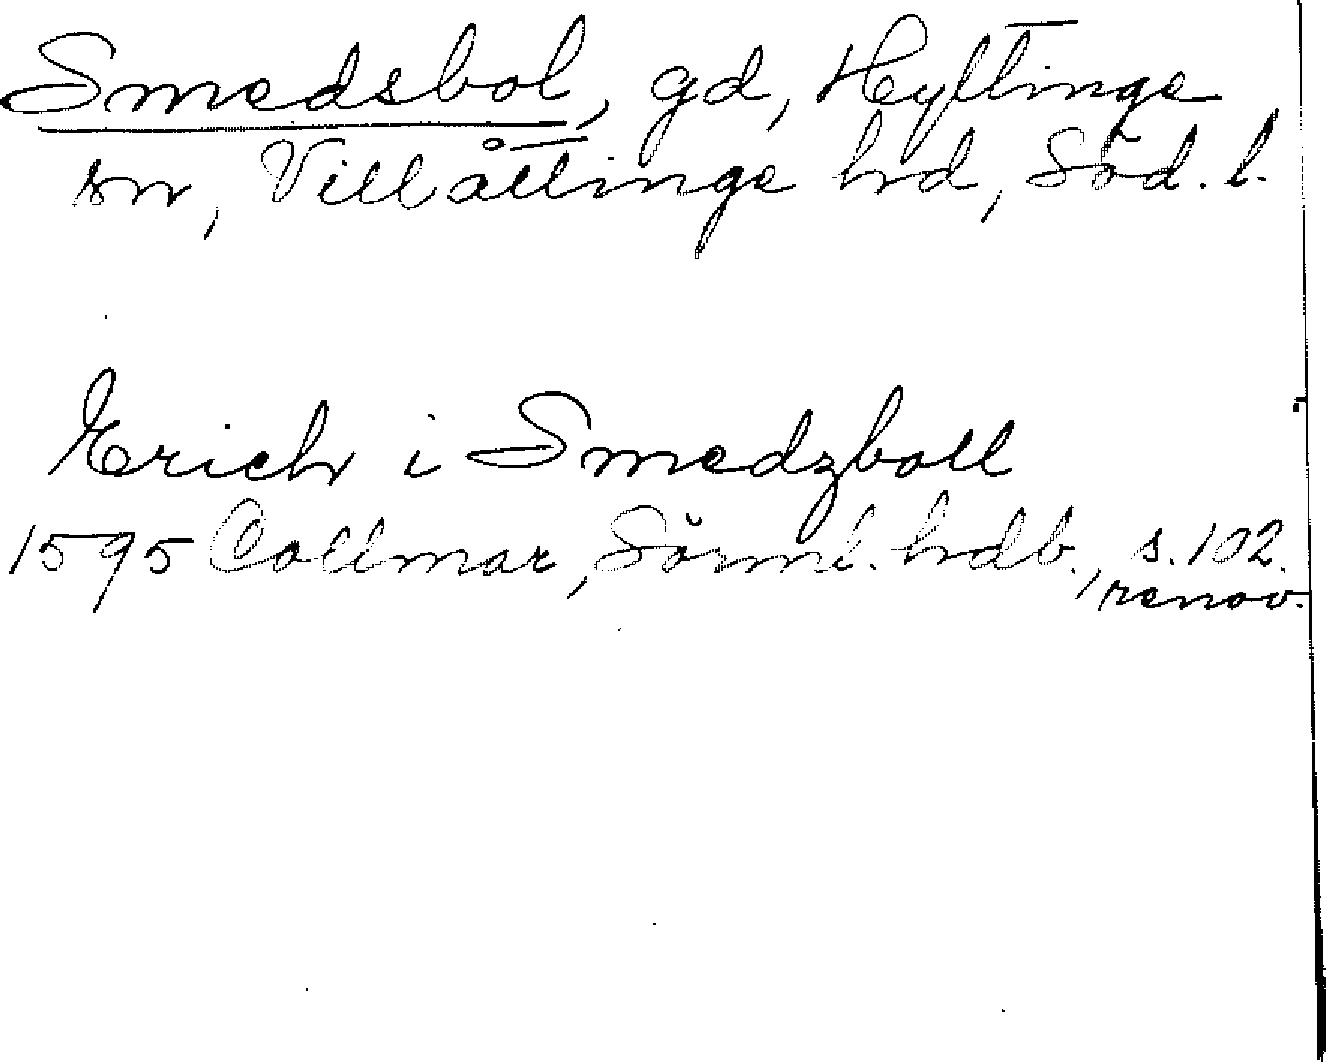 Smedsbol, gd, Hyltinge
sn, Villåttinge hd, Söd. l.
Erich i Smedzboll
1595 Collmar, Sörml. hdb., s. 102.
renov.